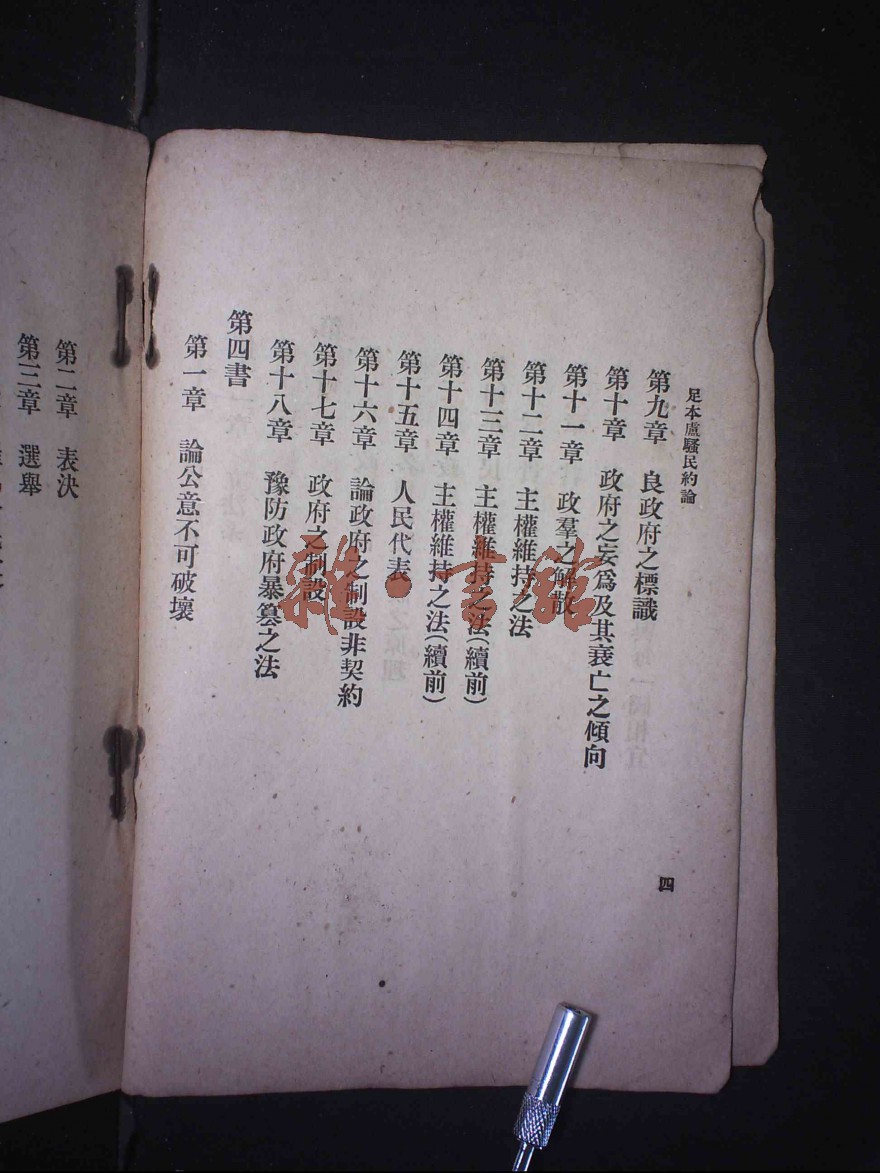 足本盧騷民約論
第九章 良政府之標識
第十章 政府之妄爲及其衰亡之傾向
第十一章 政羣之解散
第十二章 主權維持之法
第十三章 主權維持之法(續前)
第十四章 主權維持之法(續前)
第十五章 人民代表
第十六章 論政府之制設非契約
第十七章 政府之制設
第十八章 豫防政府暴篡之法
第四書
第一章 論公意不可破壞
四
第二章 表決
第三章 選舉
雜·書館